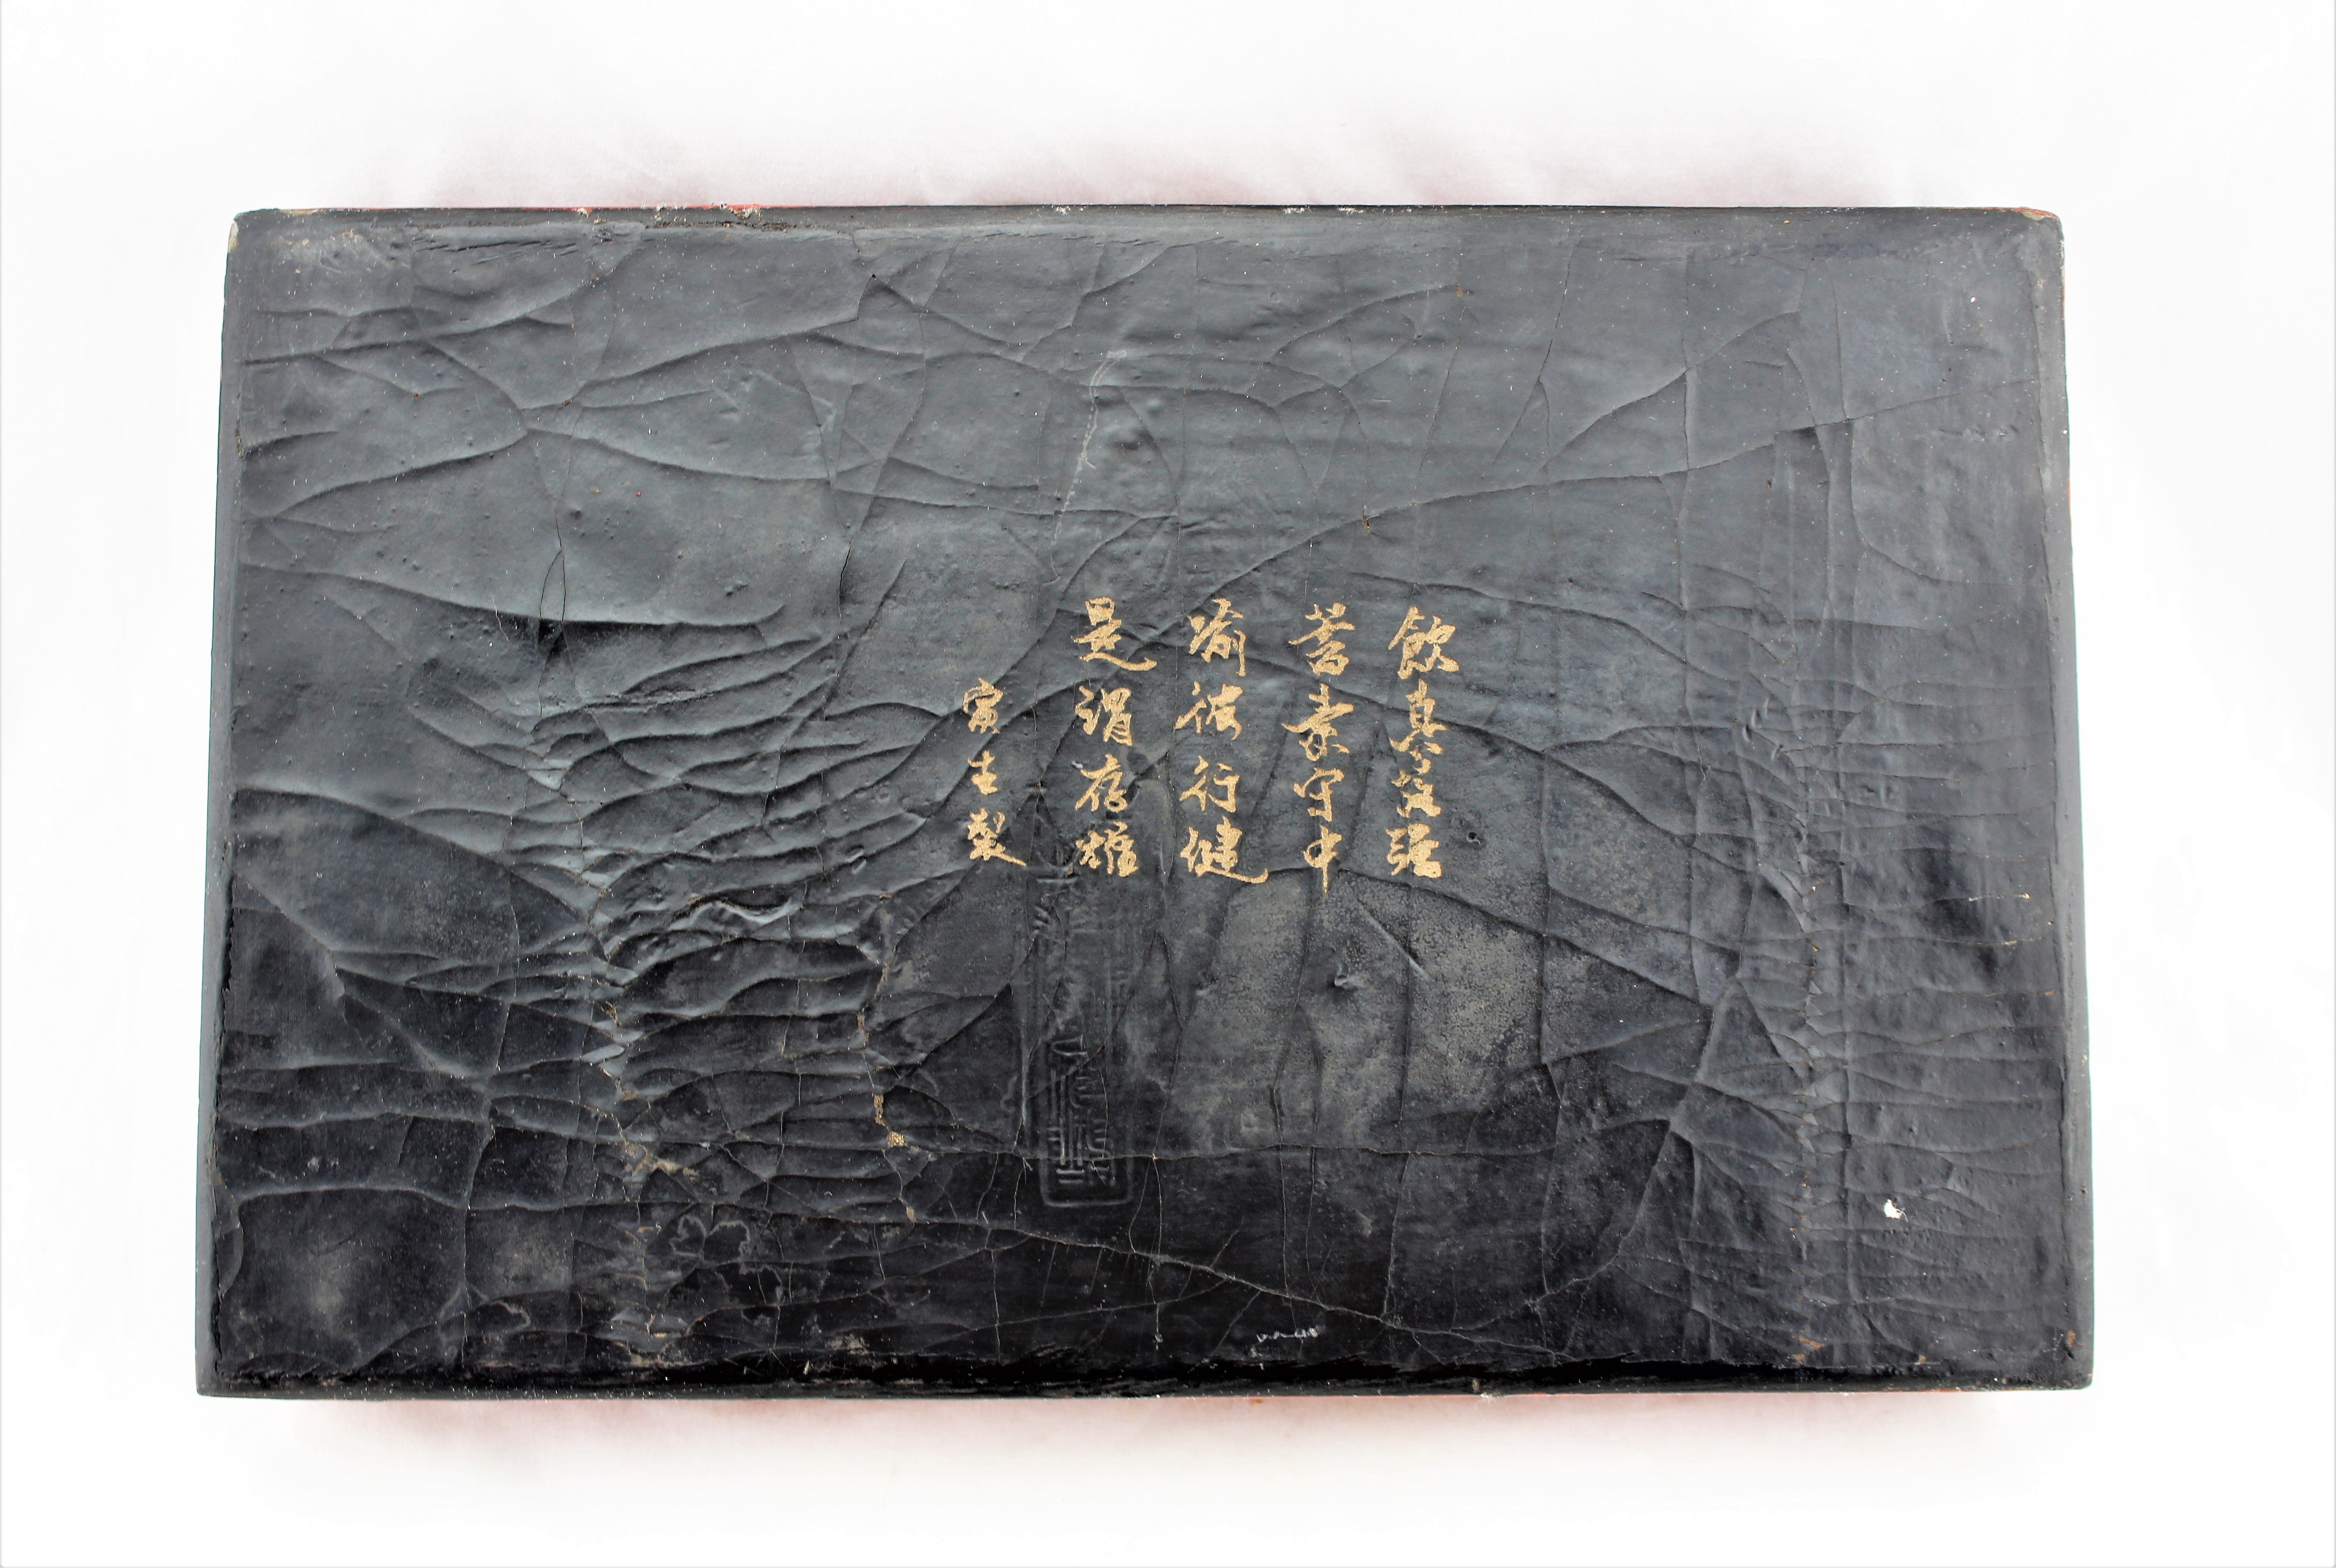 飲真茹强
蓄素守中
喻彼行健
是謂存雄
寅生製